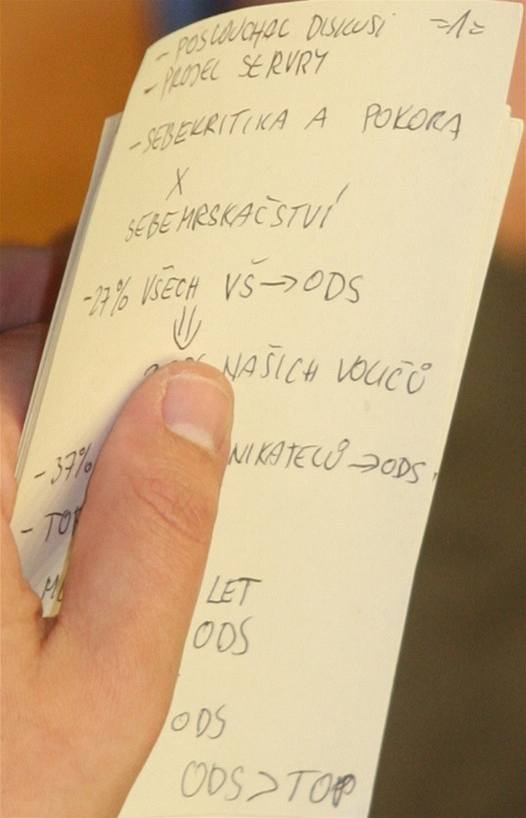 - POSLOUCHAL DISKUSI =1=
- PROJEL SERVRY
- SEBEKRITIKA A POKORA
X
SEBEMRSKAČSTVÍ
-27% VŠECH VŠ → ODS
⇓
% NAŠICH VOLIČŮ
- 37% NIKATELŮ → ODS
- TOP
LET
ODS
ODS
ODS > TOP